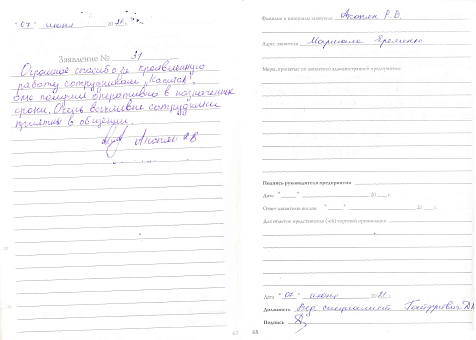 "07" июня 2021 г.
Заявление № 31
Огромное спасибо за проявленную
работу сотрудникам "Капитал",
оперативно в назначенные
сроки. Очень вежливые сотрудники
приятны в общении.
Акопян
Фамилия и инициалы заявителя Акопян Р.В.
Адрес заявителя Маршала Еременко
Меры, принятые по заявлению администрацией предприятия
Подпись руководителя предприятия
Дата " " 20 г.
Ответ заявителю выслан " " 20 г.
Для отметок представителя (-ей) торговой организации
Дата "07" июня 2021 г.
Должность Вед. специалист
Подпись
67
68